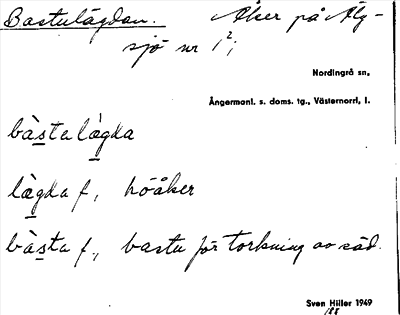 Bastulägdan. Åker på Älg-
sjö nr 1²;
Nordingrå sn,
Ångermanl. s. doms. tg., Västernorrl. l.
bàsta lägda
lägda f., höåker
bàsta f., bastu för torkning av säd.
Sven Hiller 1949
188